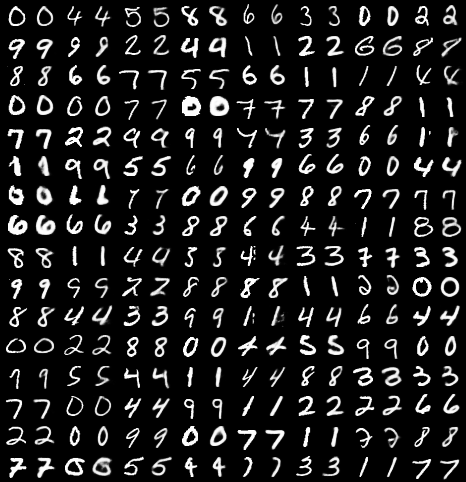 0 0 4 4 5 5 8 8 6 6 3 3 0 0 2 2
9 9 9 9 2 2 4 4 1 1 2 2 6 6 8 8
8 8 6 6 7 7 5 5 6 6 1 1 1 1 4 4
0 0 0 0 7 7 0 0 7 7 7 7 8 8 1 1
7 7 2 2 9 9 9 9 4 4 3 3 6 6 1 1
1 1 9 9 5 5 6 6 9 9 6 6 0 0 4 4
0 0 1 1 7 7 0 0 9 9 8 8 7 7 7 7
6 6 6 6 3 3 8 8 6 6 4 4 1 1 8 8
8 8 1 1 4 4 3 3 4 4 3 3 7 7 3 3
9 9 9 9 2 2 8 8 8 8 1 1 2 2 0 0
8 8 4 4 3 3 9 9 1 1 4 4 6 6 4 4
0 0 2 2 8 8 0 0 4 4 5 5 9 9 0 0
7 9 5 5 4 4 1 1 4 4 8 8 3 3 3 3
7 7 0 0 4 4 9 9 1 1 2 2 2 2 6 6
2 2 0 0 9 9 0 0 7 7 1 1 7 2 8 8
7 7 5 6 5 5 4 4 7 7 3 3 1 1 7 7